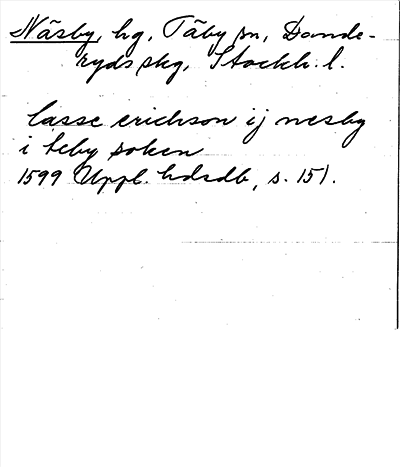 Näsby, hg, Täby sn, Dande-
ryds skg, Stockh. l.
lasse erichson ij nesby
i teby soken
1599 Uppl. hdsdb, s. 151.